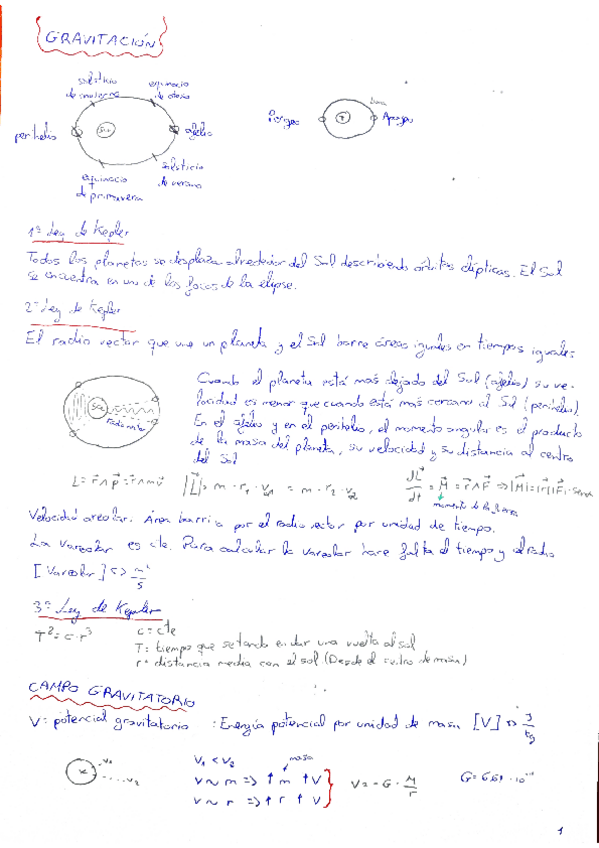 GRAVITACIÓN
solsticio de invierno
equinocio de otoño
perihelio
Sol
afelio
equinocio de primavera
solsticio de verano
Perigeo
T
luna
Apogeo
1ª Ley de Kepler
Todos los planetas se desplaza alrededor del Sol describiendo órbitas elípticas. El Sol
se encuentra en uno de los focos de la elipse.
2ª Ley de Kepler
El radio vector que une un planeta y el Sol barre áreas iguales en tiempos iguales.
Sol
radio vector
Cuando el planeta está más alejado del Sol (afelio) su ve-
locidad es menor que cuando está más cercano al Sol (perihelio).
En el afelio y en el perihelio, el momento angular es el producto
de la masa del planeta, su velocidad y su distancia al centro
del Sol
L = r⃗ ∧ p⃗ = r⃗ ∧ mv⃗ |L⃗| = m · r₁ · v₁ = m · r₂ · v₂ dL⃗/dt = M⃗ = r⃗ ∧ F⃗ ⇒ |M| = |r| |F| · senα
momento de la fuerza
Velocidad areolar. Área barrida por el radio vector por unidad de tiempo.
La Vareolar es cte. Para calcular la vareolar hace falta el tiempo y el radio
[Vareolar] <> m²/s
3ª Ley de Kepler
T² = c · r³
c = cte
T: tiempo que se tarda en dar una vuelta al sol
r = distancia media con el sol (Desde el centro de masa)
CAMPO GRAVITATORIO
V: potencial gravitatorio : Energía potencial por unidad de masa [V] <> J/kg
V₁
V₂
V₁ < V₂
masa
V ~ m => ↑ m ↑ V
V ~ r => ↑ r ↑ V
V = - G · M/r
1